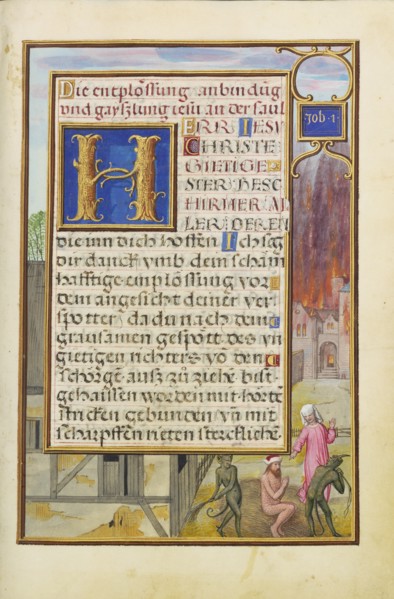 Die entplössung anbindūg
vnd gayslung iesu an der saul
HERR IESV
CHRISTE
GIETIGE
STER BESC
HIRMER A
LER DEREN
die inn dich hoffen Ich sag
dir danck vmb dein scham
hafftige emplössung vor
dem angesicht deiner ver
spotter da du nach dem
grausamen gespött des vn
gietigen richters vō den
schörgē ausz zū ziehē bist
gehaissen worden mit hörtē
stricken gebunden vn̄ mit
scharpffen rieten stercklichē
Job · 1 ·